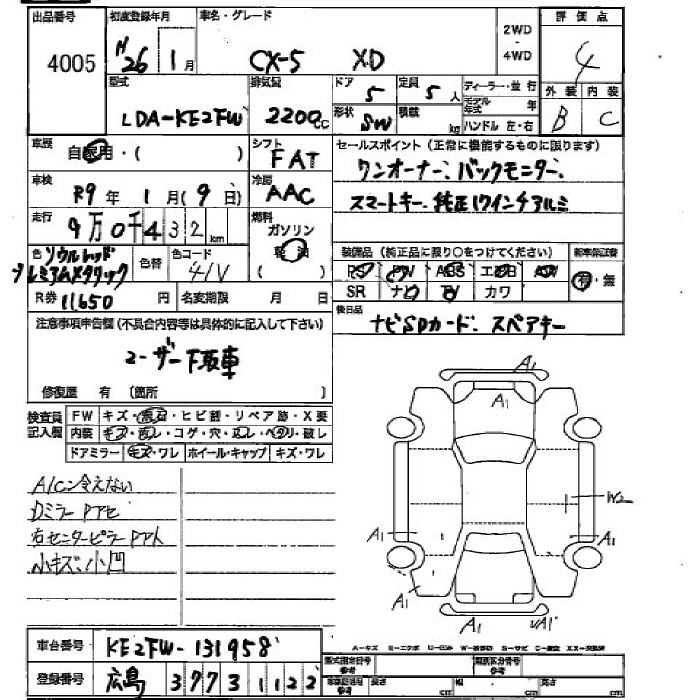 出品番号 4005
初度登録年月 H26年 1月
車名・グレード CX-5 XD
2WD・4WD
評価点 4
型式 LDA-KE2FW
排気量 2200cc
ドア 5
定員 5人
形状 SW
積載 kg
ディーラー・並行
モデル年式 年
ハンドル 左・右
外装 B
内装 C
車歴 自家用・( )
シフト FAT
セールスポイント(正常に機能するものに限ります)
ワンオーナー、バックモニター、
スマートキー、純正17インチアルミ
車検 R9年 1月(9日)
冷房 AAC
走行 9万0千432km
燃料 ガソリン 軽油 ( )
色 ソウルレッドプレミアムメタリック
色替
色コード 41V
装備品(純正品に限り○をつけてください)
新車保証書 有・無
SR ナビ カワ
R券 11,650円
名変期限 月 日
後日品 ナビSDカード、スペアキー
注意事項申告欄(不具合内容等は具体的に記入して下さい)
ユーザー下取車
修復歴 有 〔箇所 〕
検査員記入欄
FW キズ・飛石・ヒビ割・リペア跡・X要
内装 キズ・汚レ・コゲ・穴・ 凹レ・ベタリ・破レ
ドアミラー キズ・ワレ ホイール・キャップ キズ・ワレ
A/C冷えない
Dミラーアセ
右センターピラー
小キズ、小凹
A1
A1
W2
A1
A1
A1
A1
A1
A1
車台番号 KE2FW-131958
登録番号 広島 377 3 1122
型式指定番号 参考
類別区分番号 参考
長さ cm 幅 cm 高さ cm